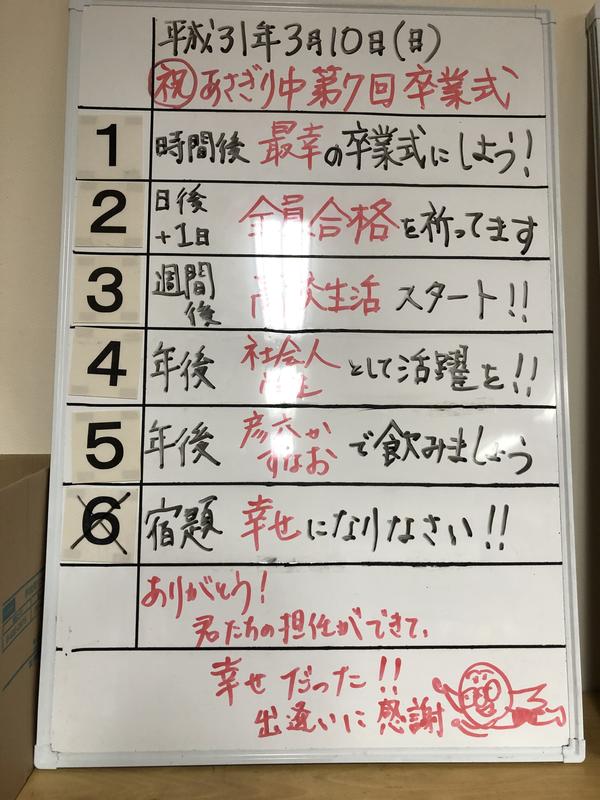 平成31年3月10日(日)
㊗あさぎり中第7回卒業式
1 時間後 最幸の卒業式にしよう!
2 日後+1日 全員合格を祈ってます
3 週間後 高校生活 スタート!!
4 年後 社会人 学生 として活躍を!!
5 年後 彦六か すなお で飲みましょう
6 宿題 幸せになりなさい!!
ありがとう!
君たちの担任ができて、
幸せだった!!
出逢いに感謝